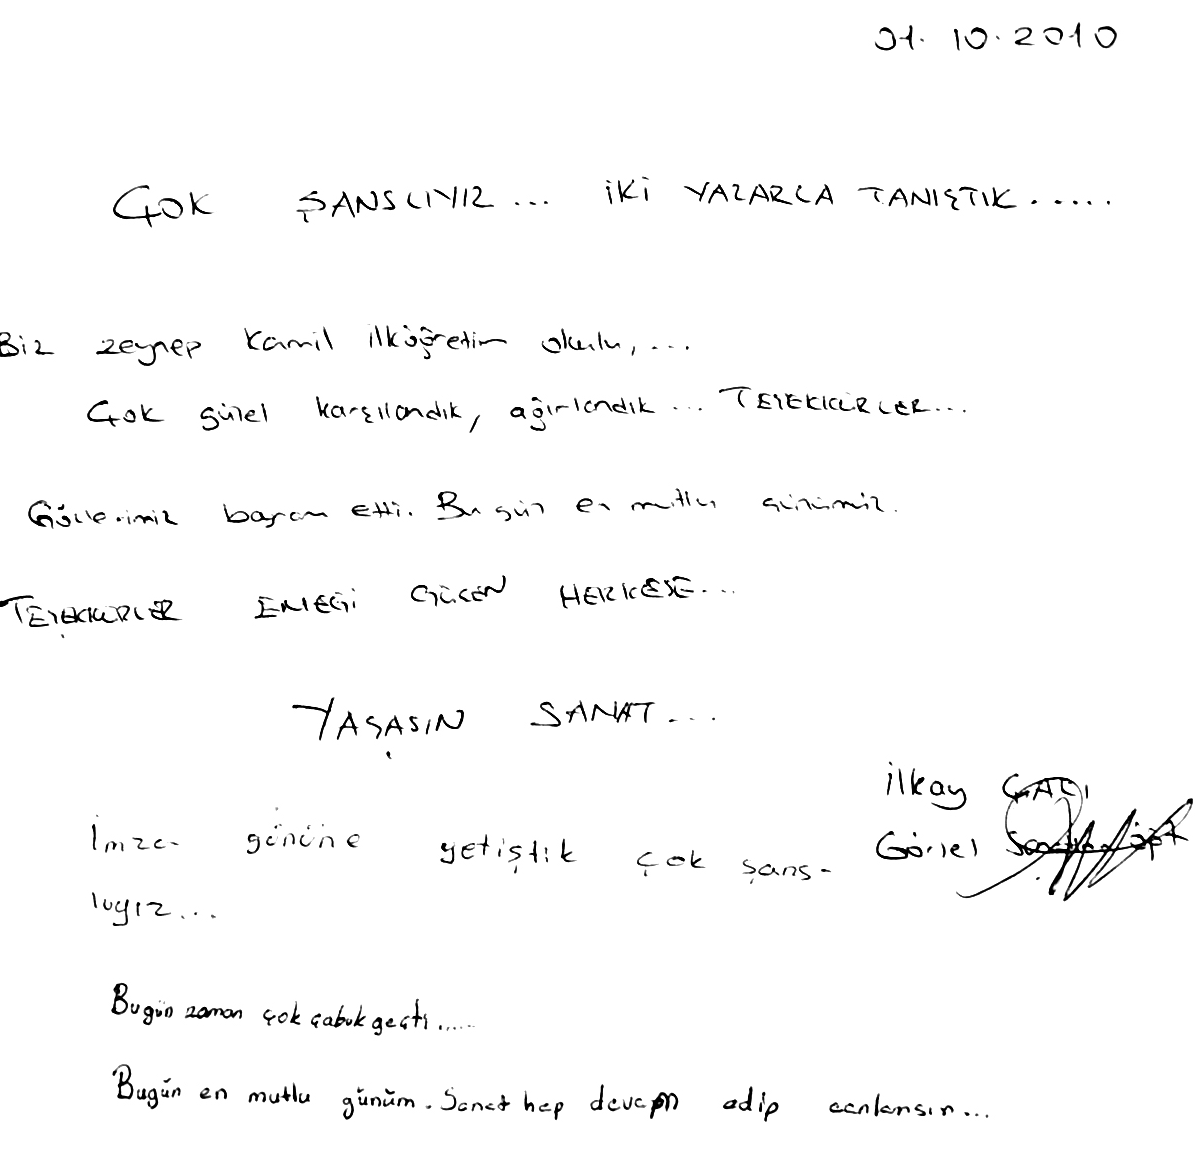 01.10.2010
ÇOK ŞANSLIYIZ... İKİ YAZARLA TANIŞTIK.....
Biz zeynep Kamil ilköğretim okulu,...
Çok güzel karşılandık, ağırlandık... TEŞEKKÜRLER...
Gözlerimiz bayram etti. Bu gün en mutlu günümüz.
TEŞEKKÜRLER EMEĞİ GEÇEN HERKESE...
YAŞASIN SANAT...
İlkay ÇATI
Görsel
İmza gününe yetiştik çok şans-
lıyız...
Bugün zaman çok çabuk geçti.....
Bugün en mutlu günüm. Sanat hep devam edip canlansın...